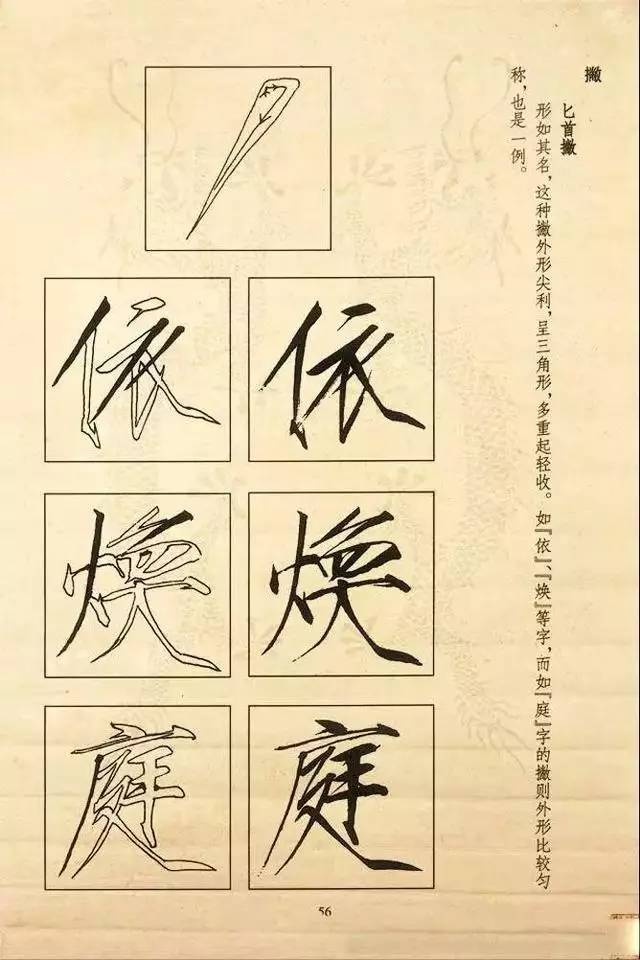 撇
匕首撇
形如其名，这种撇外形尖利，呈三角形，多重起轻收。如『依』、『焕』等字，而如『庭』字的撇则外形比较匀
称，也是一例。
依 依
焕 焕
庭 庭
56